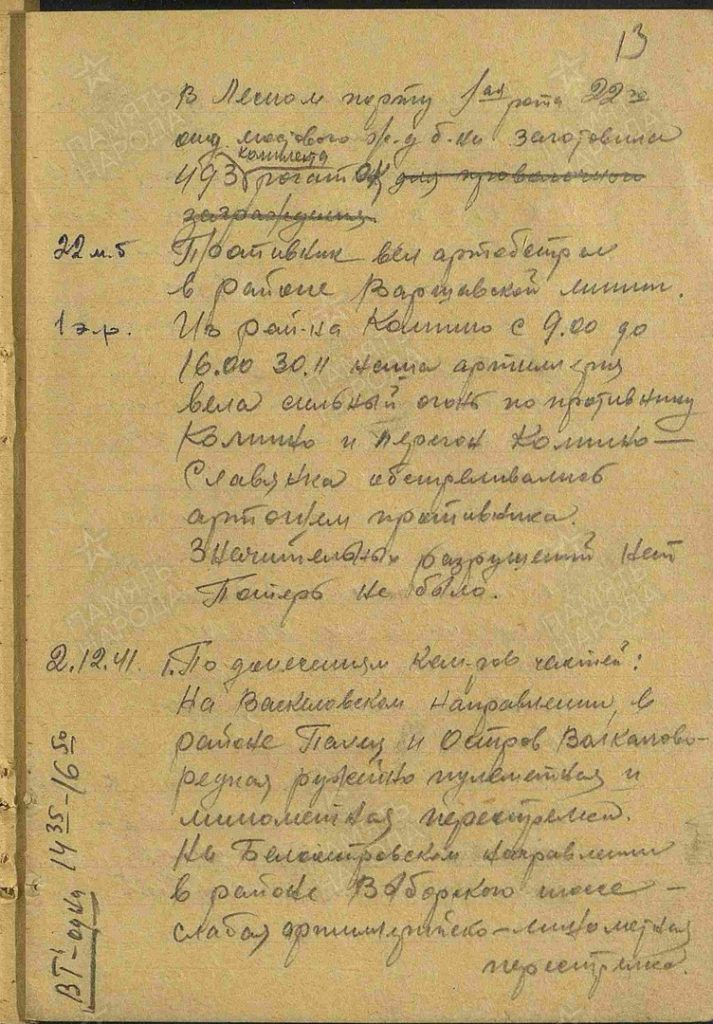 13
В Лесном порту 1ая рота 22го
отд. мостового ж.д б-на заготовила
комплекта
493 рогаток для проволочного
заграждения
22 м.б Противник вел артобстрел
в районе Варшавской линии.
1 э.р. Из рай-на Колпино с 9.00 до
16.00 30.11 наша артиллерия
вела сильный огонь по противнику
Колпино и перегон Колпино—
Славянка обстреливались
артогнем противника.
Значительных разрушений нет
Потерь не было.
2.12.41. 1. По донесениям ком-ров частей:
На Васкеловском направлении, в
районе и Остров Валкамово-
редкая ружейно пулеметная и
минометная перестрелка.
На Белоостровском направлении
в районе Выборского шоссе –
слабая артиллерийско-минометная
перестрелка.
ВТ-одна 14 35 - 16 50
ПАМЯТЬ
НАРОДА